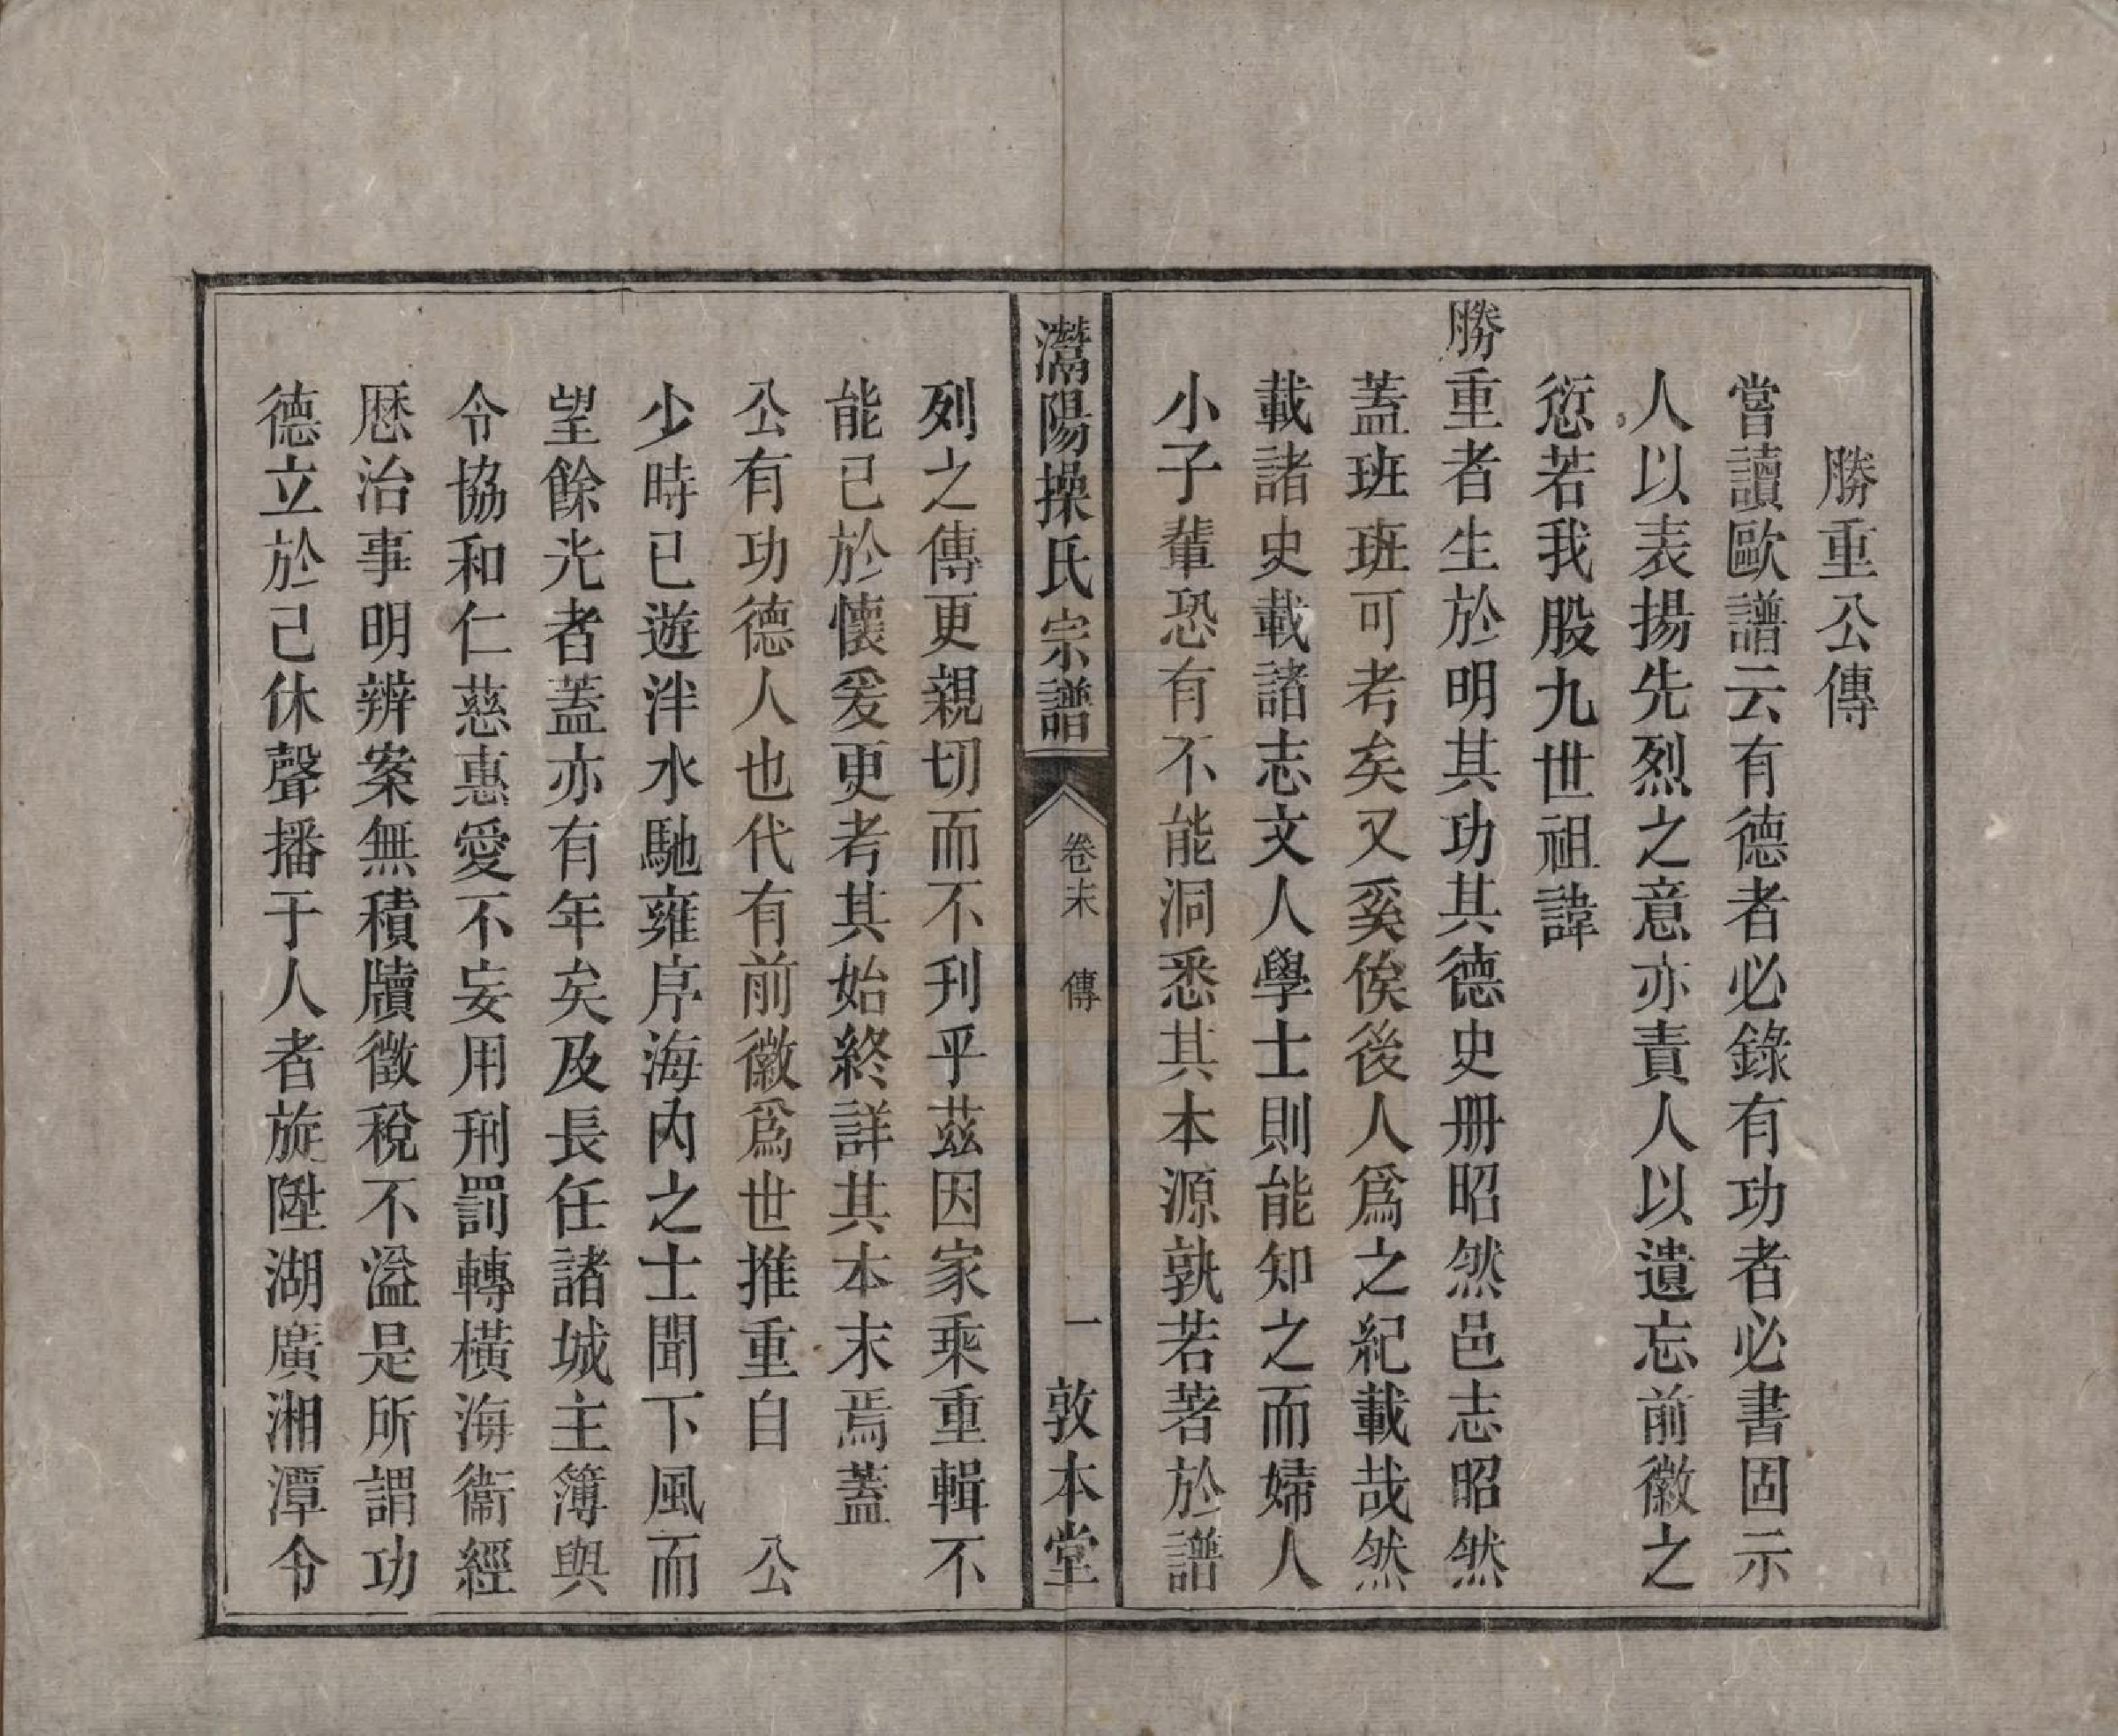 勝重公傳
嘗讀歐譜云有德者必錄有功者必書固示
人以表揚先烈之意亦責人以遺忘前徽之
愆若我股九世祖諱
勝重者生於明其功其德史册昭然邑志昭然
蓋班班可考矣又奚俟後人爲之紀載哉然
載諸史載諸志文人學士則能知之而婦人
小子輩恐有不能洞悉其本源孰若著於譜
灊陽操氏宗譜
卷末 傳
一
敦本堂
列之傳更親切而不刋乎茲因家乘重輯不
能已於懷爰更考其始終詳其本末焉蓋
公有功德人也代有前徽爲世推重自 公
少時已遊泮水馳雍序海內之士聞下風而
望餘光者蓋亦有年矣及長任諸城主簿與
令協和仁慈惠愛不妄用刑罰轉橫海衞經
厯治事明辨案無積牘徵稅不溢是所謂功
德立於己休聲播于人者旋陞湖廣湘潭令